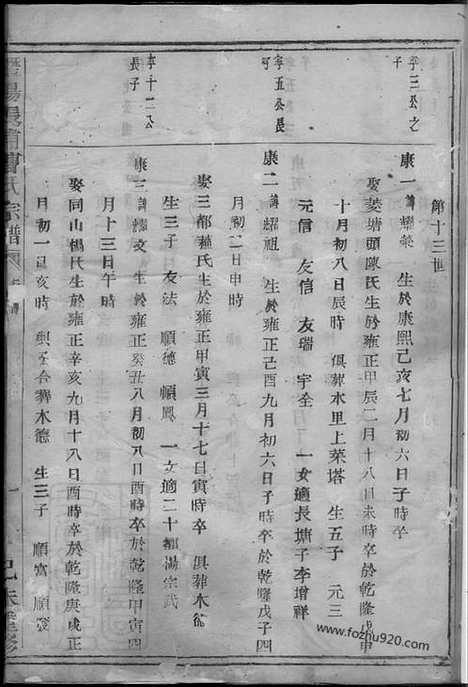 第十三世
李三公之
子
康一諱耀榮 生於康熙己亥七月初六日子時卒
娶菱塘頭陳氏生於雍正甲辰二月十八日未時卒於乾隆戊申
十月初八日辰時 俱葬水里上菜塔 生五子 元三
元信 友信 友瑞 宇全 一女適長塘子李增祥
李五公長
子
康二諱耀祖 生於雍正己酉九月初六日子時卒於乾隆戊子四
月初二日申時
娶三都鍾氏生於雍正甲寅三月十七日寅時卒 俱葬木德
生三子 友法 順德 順鳳 一女適二十都湯宗武
李十二公
長子
康三諱耀文 生於雍正癸丑八月初八日酉時卒於乾隆甲寅四
月十三日午時
娶同山楊氏生於雍正辛亥九月十八日酉時卒於乾隆庚戌正
月初一日亥時 合葬木德 生三子 順富 順發
氏宗譜
www.fozhu920.com